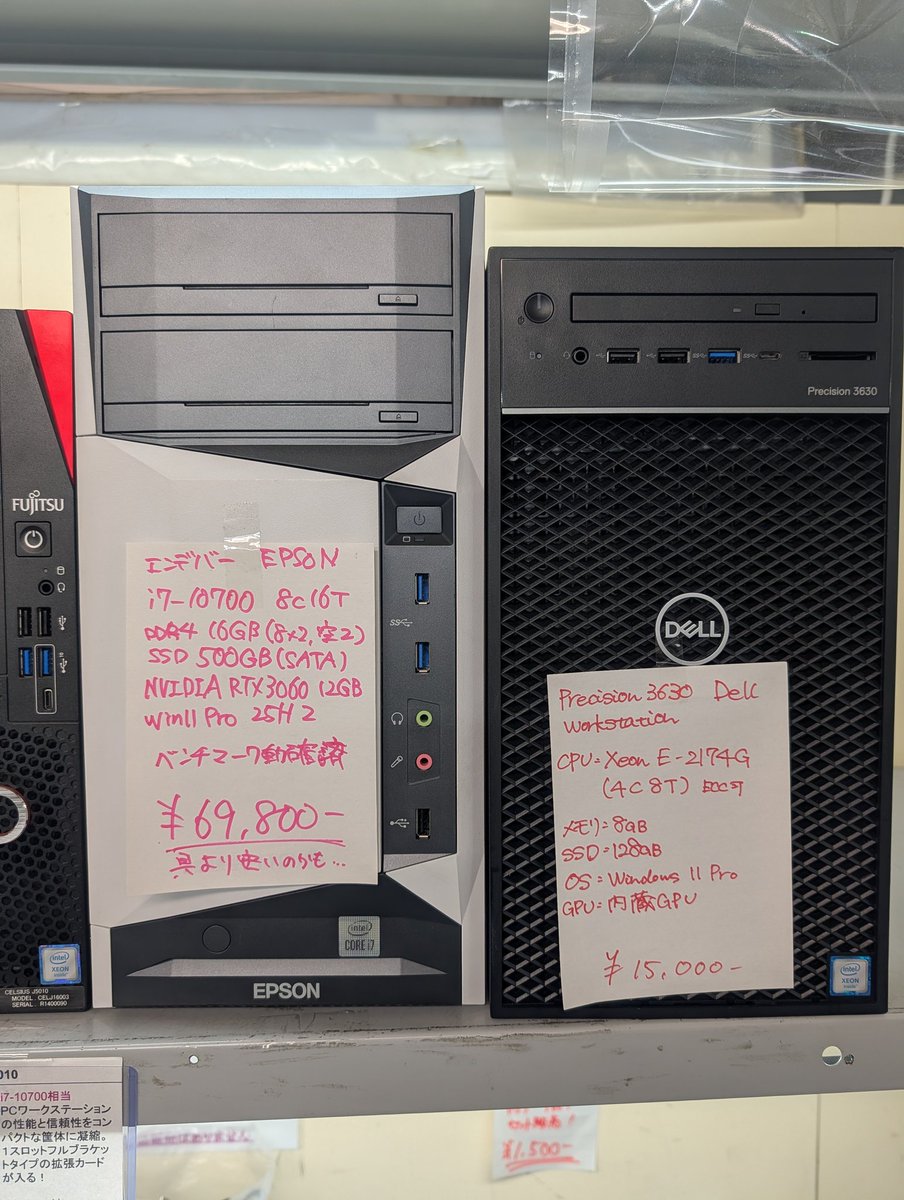 FUJITSU
intel
XEON
inside
CELSIUS J5010
MODEL: CELJ16003
SERIAL: R1400090
エンデバー EPSON
i7-10700 8c16T
DDR4 16GB(8×2,空2)
SSD 500GB(SATA)
NVIDIA RTX3060 12GB
Win11 Pro 25H2
ベンチマーク動確済
¥69,800-
より安いのかも…
intel
CORE i7
EPSON
Precision 3630
DELL
Precision 3630 Dell
Workstation
CPU=Xeon E-2174G
(4C8T) ECC可
メモリ=8GB
SSD=128GB
OS=Windows 11 Pro
GPU=内蔵GPU
¥15,000-
intel
XEON
inside
010
i7-10700相当
PCワークステーション
の性能と信頼性をコン
パクトな筐体に凝縮。
1スロットフルブラケッ
トタイプの拡張カード
が入る！
¥1,500-